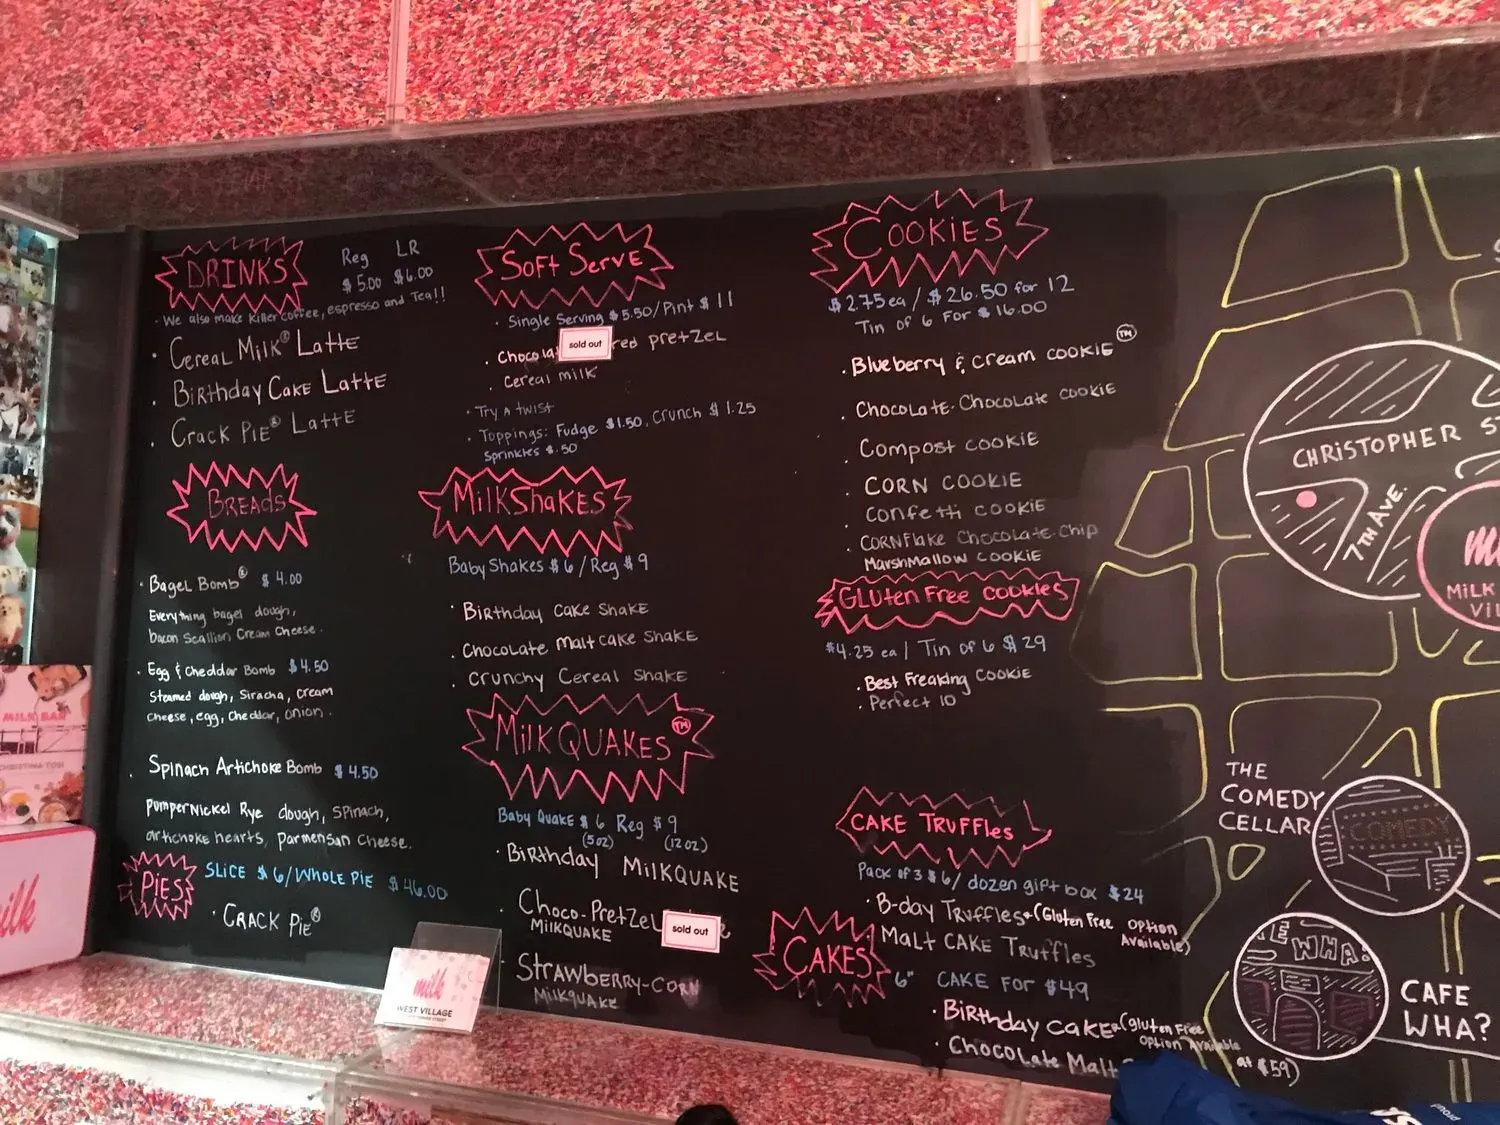 DRINKS
Reg LR
$5.00 $6.00
· We also make killer coffee, espresso and Tea!!
· Cereal Milk® Latte
· Birthday Cake Latte
· Crack Pie® Latte
Breads
· Bagel Bomb® $4.00
Everything bagel dough,
bacon Scallion Cream Cheese.
· Egg & Cheddar Bomb $4.50
Steamed dough, Siracha, cream
cheese, egg, cheddar, onion.
· Spinach Artichoke Bomb $4.50
Pumpernickel Rye dough, spinach,
artichoke hearts, Parmensan Cheese.
Pies
SLICE $6/WHOLE PIE $46.00
· Crack Pie®
Soft Serve
· Single Serving $5.50/Pint $11
· Chocola red pretzel
sold out
· Cereal milk
· Try A twist
· Toppings: Fudge $1.50, Crunch $1.25
Sprinkles $.50
MilkShakes
Baby Shakes $6/Reg $9
· Birthday Cake Shake
· Chocolate Malt cake Shake
· Crunchy Cereal Shake
MilkQuakes™
Baby Quake $6 Reg $9
(5oz) (12oz)
· Birthday MilkQuake
· Choco-Pretzel
MilkQuake
sold out
· Strawberry-Corn
MilkQuake
Cookies
$2.75 ea / $26.50 for 12
Tin of 6 For $16.00
· Blueberry & Cream cookie™
· Chocolate-Chocolate cookie
· Compost cookie
· Corn cookie
· Confetti cookie
· Cornflake Chocolate-Chip
Marshmallow cookie
Gluten Free cookies
$4.25 ea / Tin of 6 $29
· Best Freaking Cookie
· Perfect 10
Cake Truffles
Pack of 3 $6/ dozen gift box $24
· B-day Truffles (Gluten Free option
Available)
Malt Cake Truffles
Cakes
6" Cake for $49
· Birthday Cake (gluten Free
option Available
at $59)
· Chocolate Malt
CHRISTOPHER ST
7TH AVE.
MILK
VIL
THE
COMEDY
CELLAR
COMEDY
E WHA?
CAFE
WHA?
MILK BAR
CHRISTINA TOSI
milk
milk
WEST VILLAGE
proud